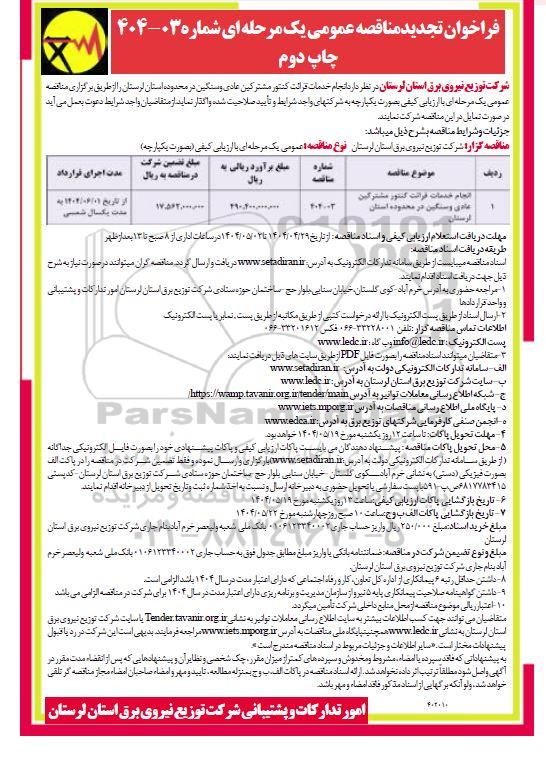 فراخوان تجدیدمناقصه عمومی یک مرحله ای شماره ۰۳-۴۰۴
چاپ دوم
شرکت توزیع نیروی برق استان لرستان در نظر دارد انجام خدمات قرائت کنتور مشترکین عادی وسنگین در محدوده استان لرستان را از طریق برگزاری مناقصه
عمومی یک مرحله ای با ارزیابی کیفی بصورت یکپارچه به شرکتهای واجد شرایط و تأیید صلاحیت شده واگذار نماید از متقاضیان واجد شرایط دعوت بعمل می آید
در صورت تمایل در این مناقصه شرکت نمایند.
جزئیات و شرایط مناقصه بشرح ذیل میباشد:
مناقصه گزار: شرکت توزیع نیروی برق استان لرستان نوع مناقصه: عمومی یک مرحله ای با ارزیابی کیفی (بصورت یکپارچه)
ردیف موضوع مناقصه شماره مناقصه مبلغ برآورد ریالی به ریال مبلغ تضمین شرکت درمناقصه به ریال مدت اجرای قرارداد
۱ انجام خدمات قرائت کنتور مشترکین عادی وسنگین در محدوده استان لرستان ۴۰۴-۰۳ ۴۹۰،۴۰۰،۰۰۰،۰۰۰ ۱۷،۵۶۲،۰۰۰،۰۰۰ از تاریخ ۱۴۰۴/۰۶/۰۱ به مدت یکسال شمسی
مهلت دریافت استعلام ارزیابی کیفی و اسناد مناقصه: از تاریخ ۱۴۰۴/۰۴/۲۹ تا ۱۴۰۴/۰۵/۰۲ در ساعات اداری از ۸ صبح تا ۱۳ بعدازظهر
طریقه دریافت اسناد مناقصه:
اسناد مناقصه میبایست از طریق سامانه تدارکات الکترونیک به آدرس: www.setadiran.ir دریافت و ارسال گردد. مناقصه گران میتوانند در صورت نیاز به شرح
ذیل جهت دریافت اسناد اقدام نمایند.
۱-مراجعه حضوری به آدرس خرم آباد-کوی گلستان-خیابان سنایی-بلوار حج -ساختمان حوزه ستادی شرکت توزیع برق استان لرستان امور تدارکات و پشتیبانی
و واحد قراردادها
۲-ارسال اسناد از طریق پست الکترونیک با ارائه درخواست کتبی از طریق مکاتبه از طریق پست، نمابر یا پست الکترونیک
اطلاعات تماس مناقصه گزار: تلفن ۳۳۲۲۸۰۰۱-۰۶۶ فکس ۳۳۲۰۱۶۱۲-۰۶۶
پست الکترونیک: info@ledc.ir وب گاه: www.ledc.ir
۳-متقاضیان میتوانند اسناد مناقصه را بصورت فایل PDF از طریق سایت های ذیل دریافت نمایند:
الف- سامانه تدارکات الکترونیکی دولت به آدرس: www.setadiran.ir
ب-سایت شرکت توزیع برق استان لرستان به آدرس: www.ledc.ir
ج-شبکه اطلاع رسانی معاملات توانیر به آدرس https://wamp.tavanir.org.ir/tender/main
د- پایگاه ملی اطلاع رسانی مناقصات به آدرس www.iets.mporg.ir
ه-انجمن صنفی کارفرمایی شرکتهای توزیع برق به آدرس: www.edca.ir
۴- مهلت تحویل پاکات: تا ساعت ۱۲ روز یکشنبه مورخ ۱۴۰۴/۰۵/۱۹ خواهد بود.
۵- محل تحویل پاکات مناقصه: پیشنهاد دهندگان می بایست پاکات ارزیابی کیفی و پاکات پیشنهادی خود را بصورت فایل الکترونیکی جداگانه
از طریق سامانه تدارکات الکترونیکی دولت به آدرس www.setadiran.ir بارگزاری و ارسال نموده و فقط تضمین شرکت در مناقصه را در پاکت الف
بصورت فیزیکی (دستی) به نشانی خرم آباد-کوی گلستان - خیابان سنایی بلوار حج -ساختمان حوزه ستادی شرکت توزیع برق استان لرستان-کدپستی
۶۸۱۷۷۸۳۴۱۵ ص.پ-۵۹۱ پست سفارشی یا تحویل حضوری به دبیرخانه ارسال و نسبت به اخذ شماره ثبت و تاریخ تحویل از دبیرخانه اقدام نمایند.
۶- تاریخ بازگشایی پاکات ارزیابی کیفی: ساعت ۱۲ روز یکشنبه مورخ ۱۴۰۴/۰۵/۱۹
۷- تاریخ بازگشایی پاکات الف ب و ج: ساعت ۱۰ صبح روز چهارشنبه مورخ ۱۴۰۴/۰۵/۲۲
مبلغ خرید اسناد: مبلغ ۲۵۰/۰۰۰ ریال واریز حساب جاری ۰۱۰۶۱۲۳۳۴۰۰۰۲ بانک ملی شعبه ولیعصر خرم آباد بنام جاری شرکت توزیع نیروی برق استان
لرستان
مبلغ و نوع تضمین شرکت در مناقصه: ضمانتنامه بانکی یا واریز مبلغ مطابق جدول فوق به حساب جاری ۰۱۰۶۱۲۳۳۴۰۰۰۲ بانک ملی شعبه ولیعصر خرم
آباد بنام جاری شرکت توزیع نیروی برق استان لرستان.
۸-داشتن حداقل رتبه ۶ پیمانکاری از اداره کل تعاون، کار و رفاه اجتماعی که دارای اعتبار مدت در سال ۱۴۰۴ باشد الزامی است.
۹-داشتن گواهینامه صلاحیت پیمانکاری پایه ۵ نیرو از سازمان مدیریت و برنامه ریزی دارای اعتبار مدت در سال ۱۴۰۴ برای شرکت در مناقصه الزامی می باشد
۱۰-اعتبار ریالی موضوع مناقصه از محل منابع داخلی شرکت تأمین میگردد.
متقاضیان می توانند جهت کسب اطلاعات بیشتر به سایت اطلاع رسانی معاملات توانیر به نشانی Tender.tavanir.org.ir یا سایت شرکت توزیع نیروی برق
استان لرستان به نشانی www.ledc.ir همچنین پایگاه ملی مناقصات به آدرس www.iets.mporg.ir مراجعه فرمایند. بدیهی است این شرکت در رد یا قبول
پیشنهادات مختار است. «سایر اطلاعات و جزئیات مربوط در اسناد مناقصه مندرج است.»
به پیشنهاداتی که فاقد سپرده یا امضاء، مشروط و مخدوش و سپرده های کمتر از میزان مقرر، چک شخصی و نظایر آن و پیشنهادهایی که پس از انقضاء مدت مقرر در
آگهی واصل شود مطلقاً ترتیب اثر داده نخواهد شد. ارائه اسناد مناقصه در پاکات الف، ب و ج بمنزله مطالعه، تایید و مهر و امضاء صاحبان امضاء مجاز مناقصه گر تلقی
خواهد شد، ولو آنکه برگهایی از اسناد مذکور فاقد امضاء و مهر باشد.
۴۰۲۰۱۰
امور تدارکات و پشتیبانی شرکت توزیع نیروی برق استان لرستان